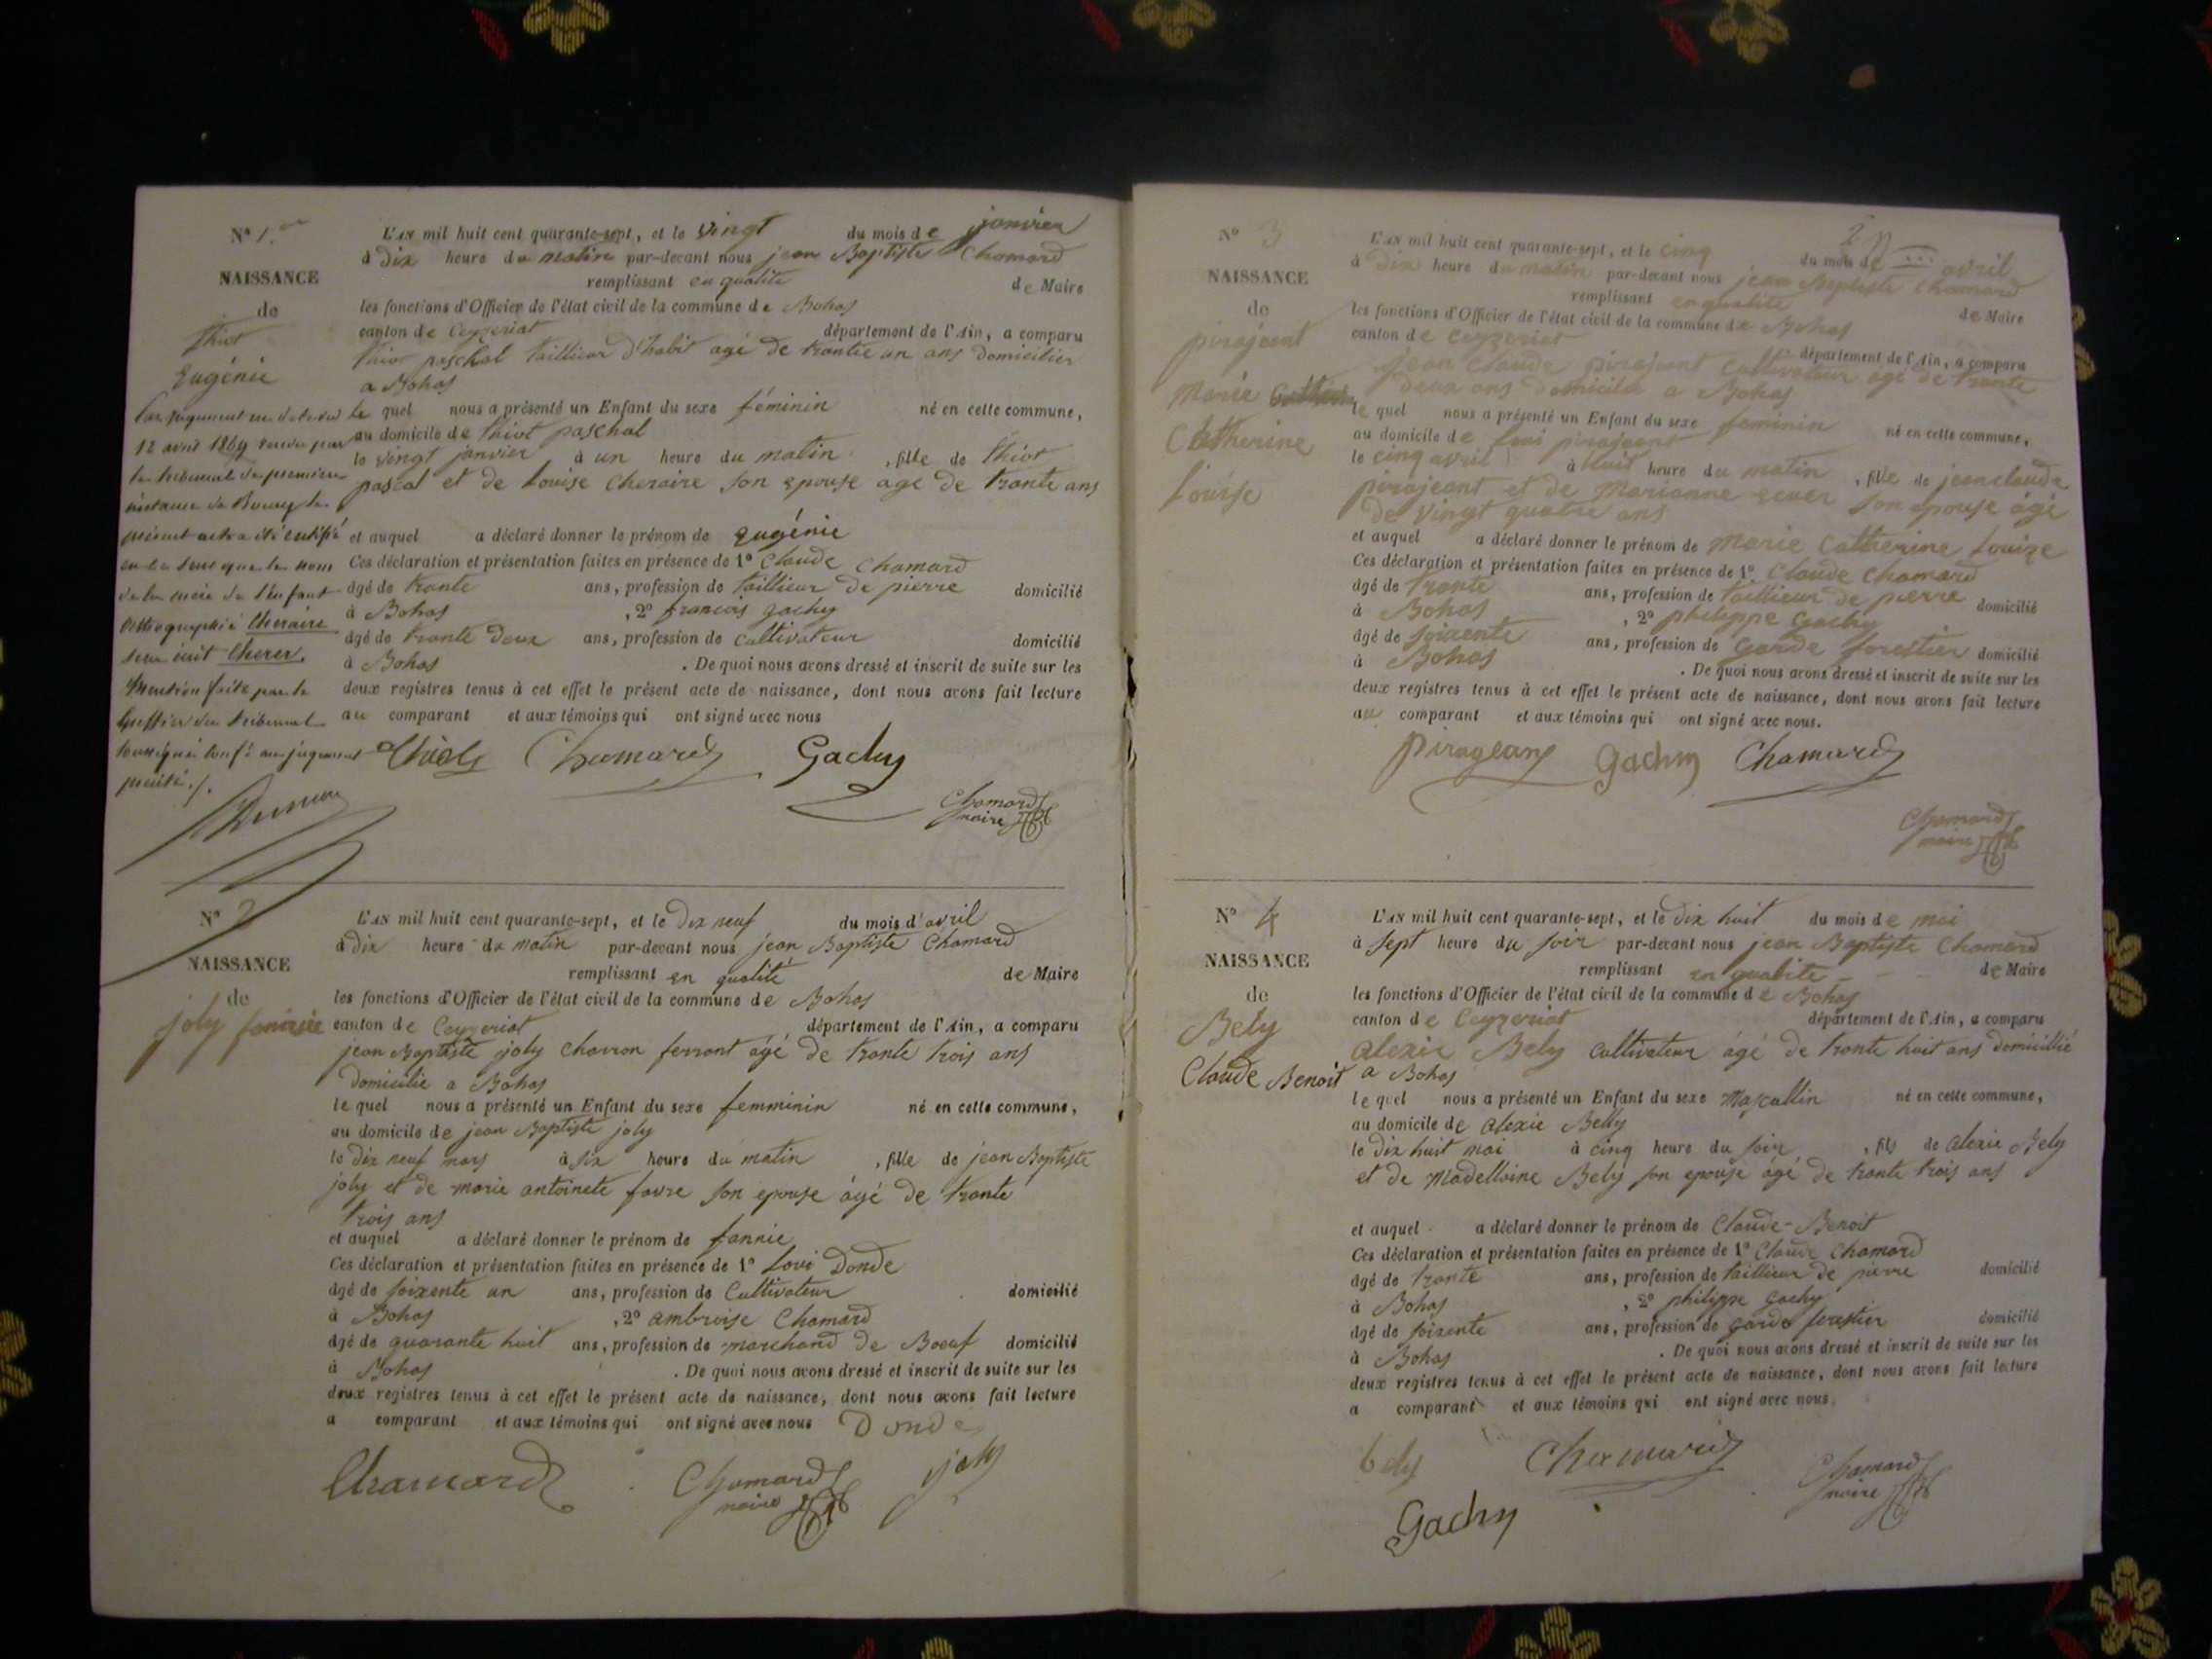 N° 1.er
NAISSANCE
de
Thiot
Eugénie
Par jugement en date du
12 avril 1869 rendu par
le tribunal de première
instance de Bourg le
présent acte a été rectifié
en ce sens que le nom
de la mère de l'enfant
orthographié Cheraire
sera écrit Cherer.
Mention faite par le
Greffier du tribunal
soussigné
L'AN mil huit cent quarante-sept, et le vingt du mois de janvier
à dix heure du matin par-devant nous jean Baptiste Chamard
remplissant en qualité de Maire
les fonctions d'Officier de l'état civil de la commune de Bohas
canton de Ceyzeriat département de l'Ain, a comparu
thiot paschal taillieur d'habit agé de trantte un ans domicilier
a Bohas
le quel nous a présenté un Enfant du sexe féminin né en cette commune,
au domicile de thiot paschal
le vingt janvier à un heure du matin, fille de thiot
pascal et de Louise cheraire son epouse agé de trante ans
et auquel a déclaré donner le prénom de eugénie
Ces déclaration et présentation faites en présence de 1° Claude Chamard
âgé de trante ans, profession de taillieur de pierre domicilié
à Bohas, 2° francois gachy
âgé de trante deux ans, profession de cultivateur domicilié
à Bohas. De quoi nous avons dressé et inscrit de suite sur les
deux registres tenus à cet effet le présent acte de naissance, dont nous avons fait lecture
au comparant et aux témoins qui ont signé avec nous
Chamard Gachy
Chamard
maire
N° 2
NAISSANCE
de
joly fannie
L'AN mil huit cent quarante-sept, et le dix neuf du mois d'avril
à dix heure du matin par-devant nous jean Baptiste Chamard
remplissant en qualité de Maire
les fonctions d'Officier de l'état civil de la commune de Bohas
canton de Ceyzeriat département de l'Ain, a comparu
jean Baptiste joly charron ferrant âgé de trante trois ans
domicilie a Bohas
le quel nous a présenté un Enfant du sexe femminin né en cette commune,
au domicile de jean Baptiste joly
le dix neuf mars à six heure du matin, fille de jean Baptiste
joly et de marie antoinete favre son epouse âgé de trante
trois ans
et auquel a déclaré donner le prénom de fannie
Ces déclaration et présentation faites en présence de 1° Lovi Donde
âgé de soixente un ans, profession de Cultivateur domicilié
à Bohas, 2° ambroise Chamard
âgé de quarante huit ans, profession de marchand de Boeuf domicilié
à Bohas. De quoi nous avons dressé et inscrit de suite sur les
deux registres tenus à cet effet le présent acte de naissance, dont nous avons fait lecture
a comparant et aux témoins qui ont signé avec nous Donde
Chamard Chamard joly
maire
N° 3
NAISSANCE
de
pirajeant
Marie
Catherine
Louise
2
L'AN mil huit cent quarante-sept, et le cinq du mois de avril
à dix heure du matin par-devant nous jean Baptiste Chamard
remplissant en qualité de Maire
les fonctions d'Officier de l'état civil de la commune de Bohas
canton de Ceyzeriat département de l'Ain, a comparu
jean Claude pirajeant Cultivateur agé de trante
deux ans domicilie a Bohas
le quel nous a présenté un Enfant du sexe feminin né en cette commune,
au domicile de pirajeant
le cinq avril à huit heure du matin, fille de jean claude
pirajeant et de marianne ecuer son epouse âgé
de vingt quatre ans
et auquel a déclaré donner le prénom de Marie Catherine Louize
Ces déclaration et présentation faites en présence de 1° Claude Chamard
âgé de trante ans, profession de taillieur de pierre domicilié
à Bohas, 2° philippe Gachy
âgé de soixente ans, profession de Garde forestier domicilié
à Bohas. De quoi nous avons dressé et inscrit de suite sur les
deux registres tenus à cet effet le présent acte de naissance, dont nous avons fait lecture
au comparant et aux témoins qui ont signé avec nous.
pirageant Gachy Chamard
Chamard
maire
N° 4
NAISSANCE
de
Bely
Claude Benoit
L'AN mil huit cent quarante-sept, et le dix huit du mois de mai
à sept heure du soir par-devant nous jean Baptiste Chamard
remplissant en qualite de Maire
les fonctions d'Officier de l'état civil de la commune de Bohas
canton de Ceyzeriat département de l'Ain, a comparu
alexie Bely cultivateur âgé de trante huit ans domicillié
a Bohas
le quel nous a présenté un Enfant du sexe Mascullin né en cette commune,
au domicile de alexie Belly
le dix huit mai à cinq heure du soir, fils de alexie Bely
et de Madellaine Bely son epouse agé de trante trois ans
et auquel a déclaré donner le prénom de Claude-Benoit
Ces déclaration et présentation faites en présence de 1° Claude Chamard
âgé de trante ans, profession de taillieur de pierre domicilié
à Bohas, 2° philippe Gachy
âgé de soixente ans, profession de garde forestier domicilié
à Bohas. De quoi nous avons dressé et inscrit de suite sur les
deux registres tenus à cet effet le présent acte de naissance, dont nous avons fait lecture
a comparant et aux témoins qui ont signé avec nous.
bely Chamard Chamard
maire
Gachy